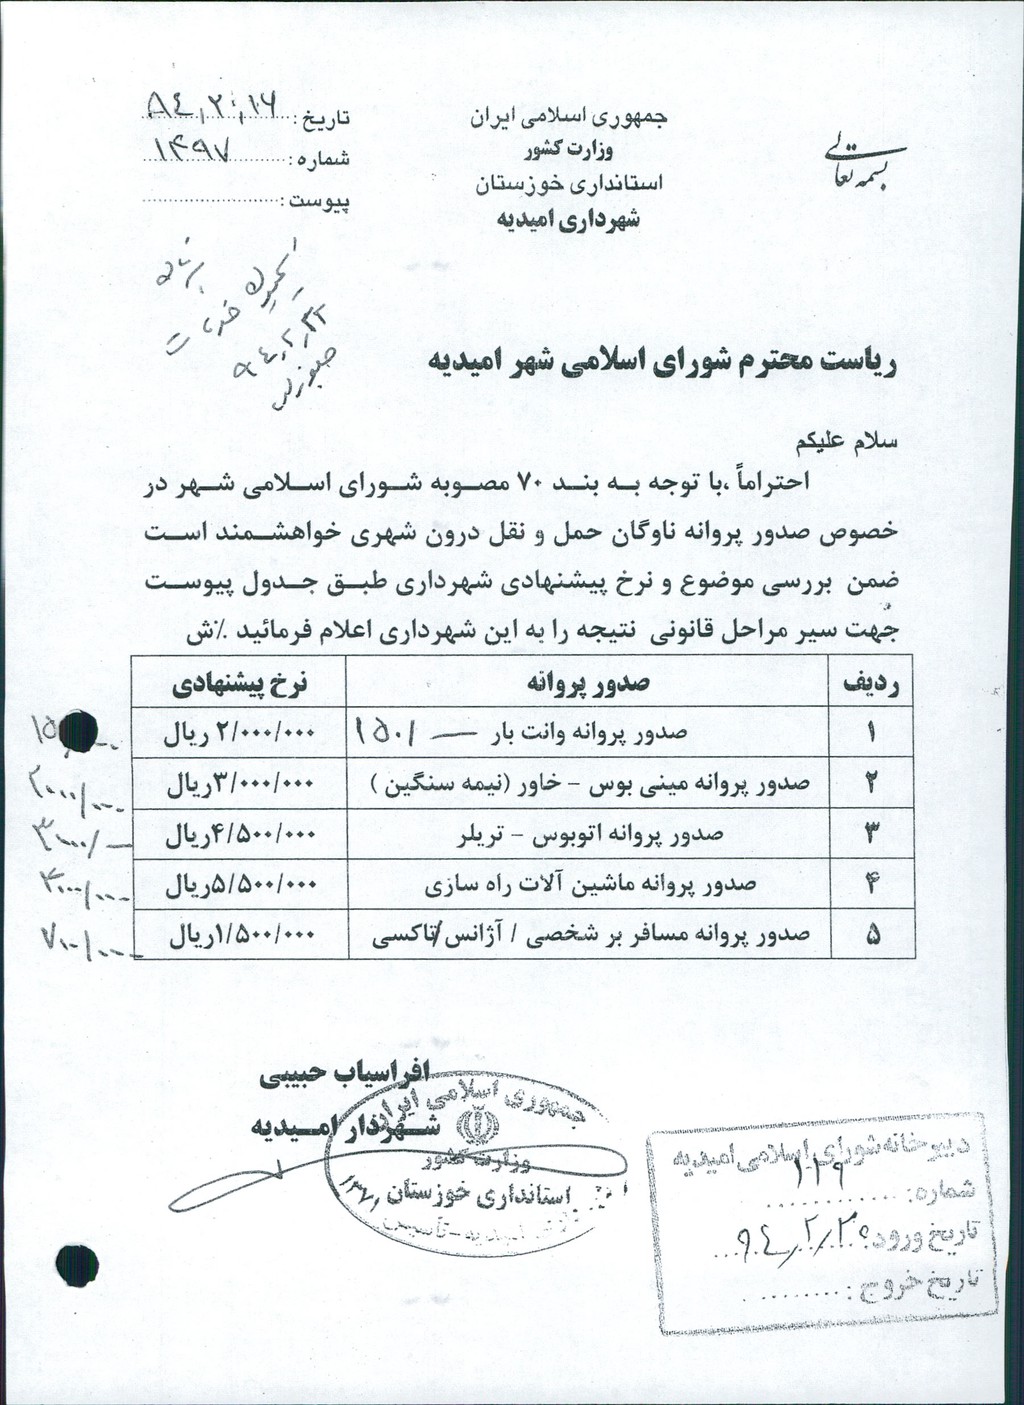 بسمه تعالی
جمهوری اسلامی ایران
وزارت کشور
استانداری خوزستان
شهرداری امیدیه
تاریخ :
شماره : ۱۴۹۷
پیوست :
ریاست محترم شورای اسلامی شهر امیدیه
سلام علیکم
احتراماً ،با توجه به بند ۷۰ مصوبه شورای اسلامی شهر در
خصوص صدور پروانه ناوگان حمل و نقل درون شهری خواهشمند است
ضمن بررسی موضوع و نرخ پیشنهادی شهرداری طبق جدول پیوست
جهت سیر مراحل قانونی نتیجه را به این شهرداری اعلام فرمائید ٪ش
ردیف صدور پروانه نرخ پیشنهادی
۱ صدور پروانه وانت بار ۲/۰۰۰/۰۰۰ ریال
۲ صدور پروانه مینی بوس - خاور (نیمه سنگین ) ۳/۰۰۰/۰۰۰ریال
۳ صدور پروانه اتوبوس - تریلر ۴/۵۰۰/۰۰۰ریال
۴ صدور پروانه ماشین آلات راه سازی ۵/۵۰۰/۰۰۰ریال
۵ صدور پروانه مسافر بر شخصی / آژانس/تاکسی ۱/۵۰۰/۰۰۰ریال
افراسیاب حبیبی
شهردار امیدیه
جمهوری اسلامی ایران
وزارت کشور
استانداری خوزستان
دبیرخانه شورای اسلامی امیدیه
شماره: ۱۱۹
تاریخ ورود:
تاریخ خروج :